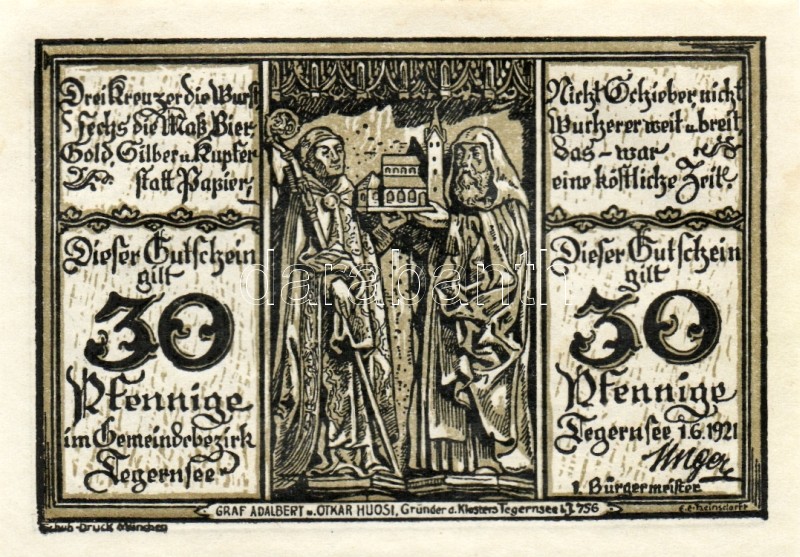 Drei Kreuzer die Wurst
Sechs die Maß Bier,
Gold, Silber u. Kupfer
statt Papier,
Dieser Gutschein
gilt
30
Pfennige
im Gemeindebezirk
Tegernsee
Nicht Schieber, nicht
Wucherer weit u. breit,
das – war
eine köstliche Zeit.
Dieser Gutschein
gilt
30
Pfennige
Tegernsee 1.6.1921
Unger
1. Bürgermeister
GRAF ADALBERT u. OTKAR HUOSI, Gründer d. Klosters Tegernsee i.J. 756
Schub-Druck München
darabanth